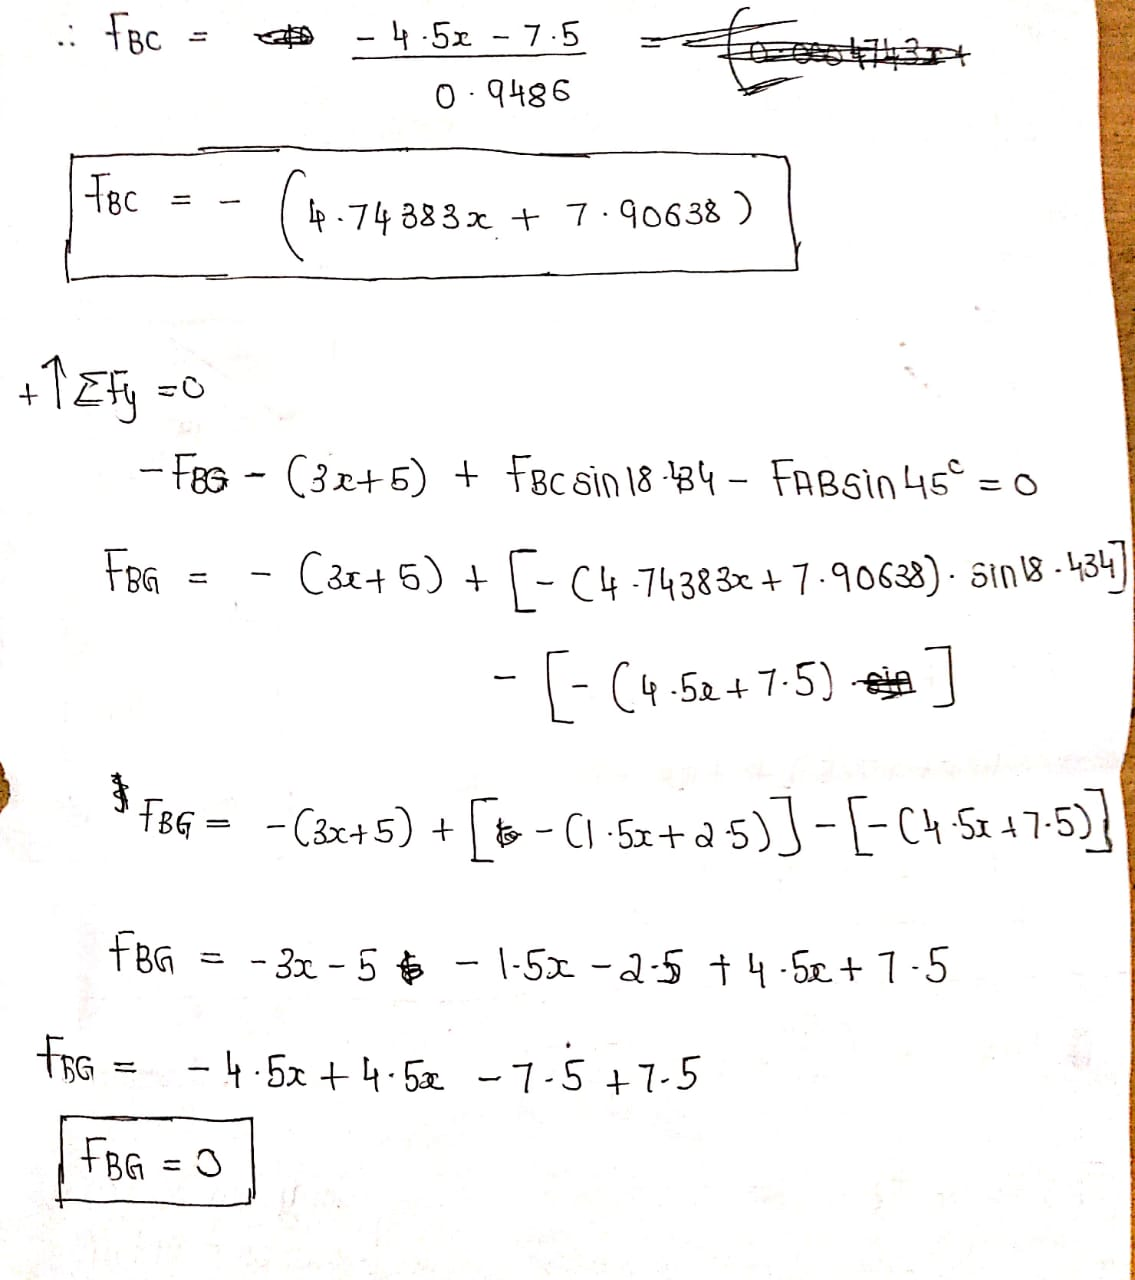 ∴ FBC = (-4.5x - 7.5) / 0.9486 =
FBC = - (4.74383x + 7.90638)
+↑ΣFy = 0
-FBG - (3x+5) + FBC sin 18.434 - FAB sin 45° = 0
FBG = - (3x+5) + [-(4.74383x + 7.90638) . sin 18.434]
- [-(4.5x + 7.5) ]
FBG = -(3x+5) + [ -(1.5x + 2.5)] - [-(4.5x + 7.5)]
FBG = -3x - 5 - 1.5x - 2.5 + 4.5x + 7.5
FBG = -4.5x + 4.5x - 7.5 + 7.5
FBG = 0